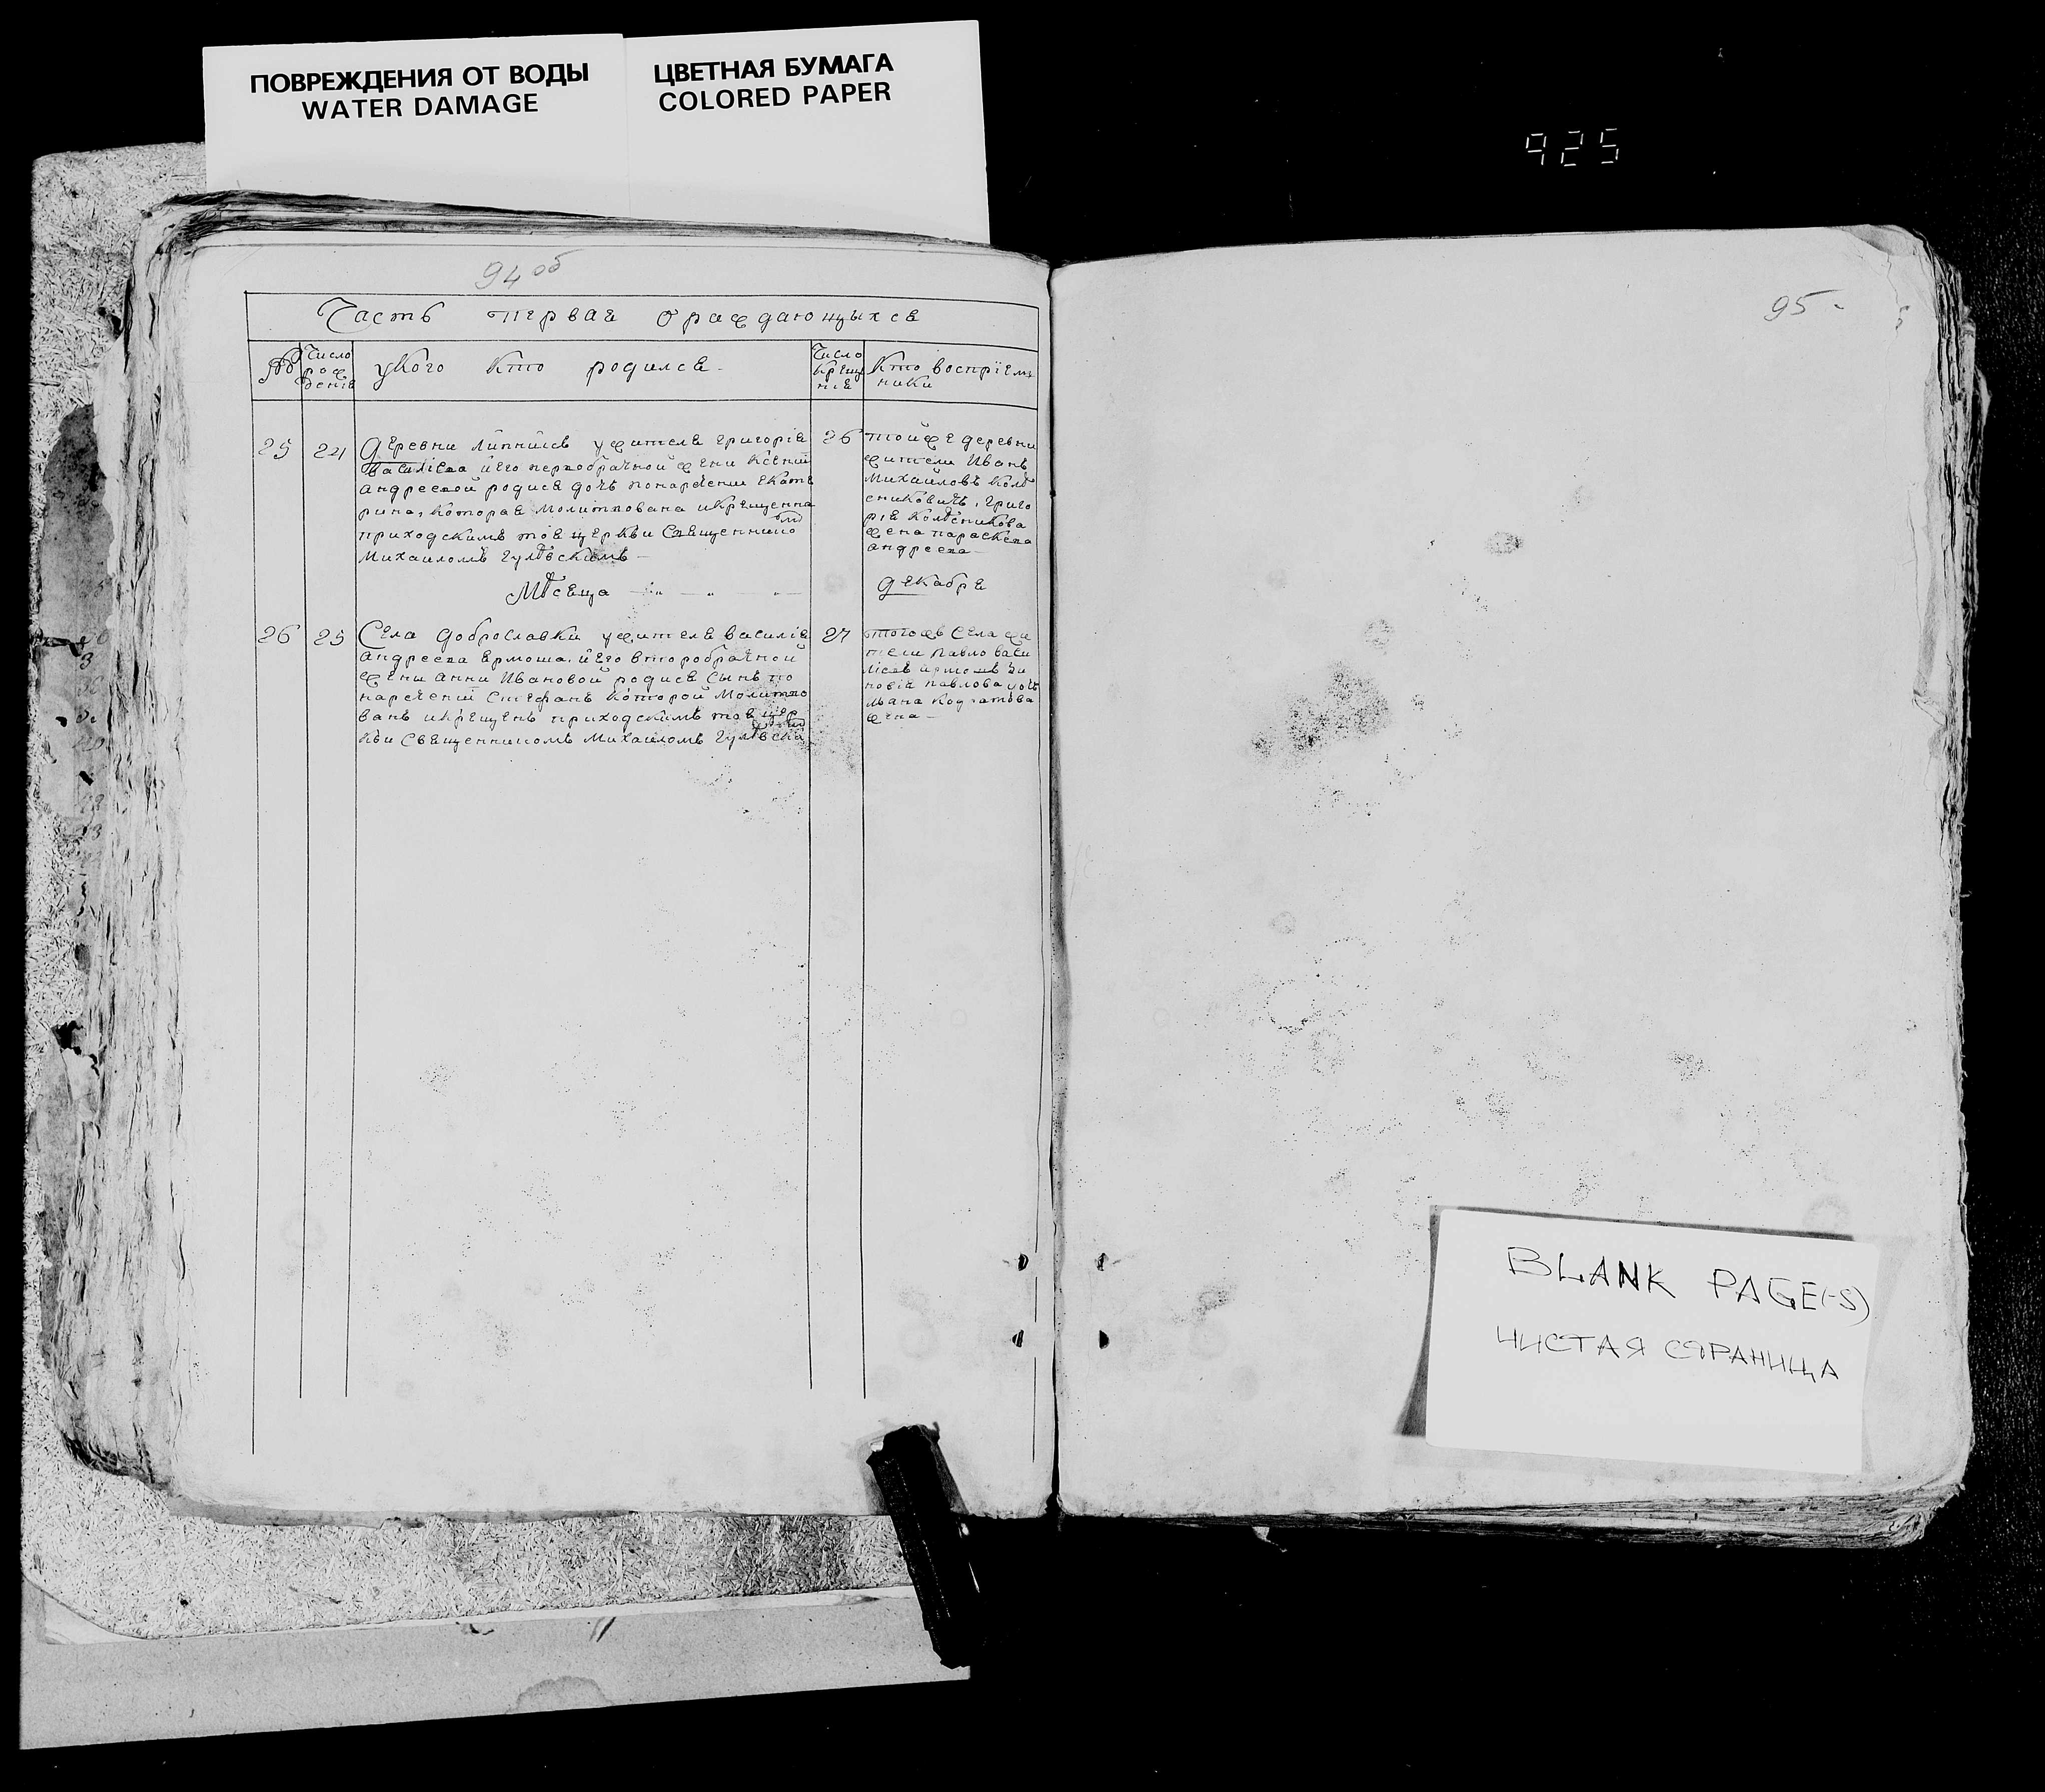 ПОВРЕЖДЕНИЯ ОТ ВОДЫ
WATER DAMAGE
ЦВЕТНАЯ БУМАГА
COLORED PAPER
925
94 об
95
Часть первая ораждающыхся
№
Число рождения
укого кто родился
Число крещения
Кто воспріемники
25
24
Деревни Липнилів ужителя Григорія
Василіева иего первобрачной жени Ксении
Андреевой родися дочъ понаречени Екате
рина, которая молитвована икрещенна
приходскимъ тоя церкви Священнико
мъ
Михаиломъ Гулѣвскимъ
26
тойже деревни
жители Иванъ
Михайловъ Колѣ
сниковичъ, Григо
рія Колѣсникова
жена Параскева
Андреева
Мѣсяца
Декабря
26
25
Села Доброславки ужителя Василія
Андреева Ермоша, иего второбрачной
жени Анни Ивановой родися сынъ по
наречении Стефанъ которой молитво
ванъ икрещенъ приходскимъ тоя цер
кви Священникомъ Михаиломъ Гулѣвски
27
тогожъ Села жи
тели Павло Васи
ліевъ
новія Павлова
жена
BLANK PAGE(-S)
ЧИСТАЯ СТРАНИЦА